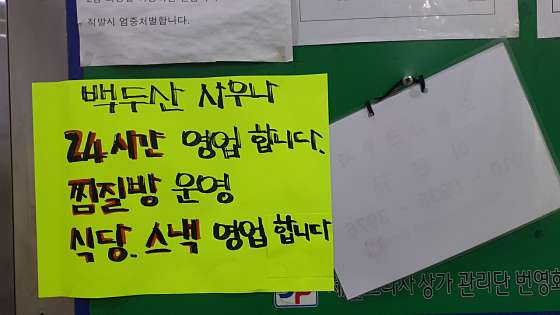 적발시 엄중처벌합니다.
백두산 사우나
24시간 영업 합니다.
찜질방 운영
식당. 스낵 영업 합니다
상가 관리단 번영회